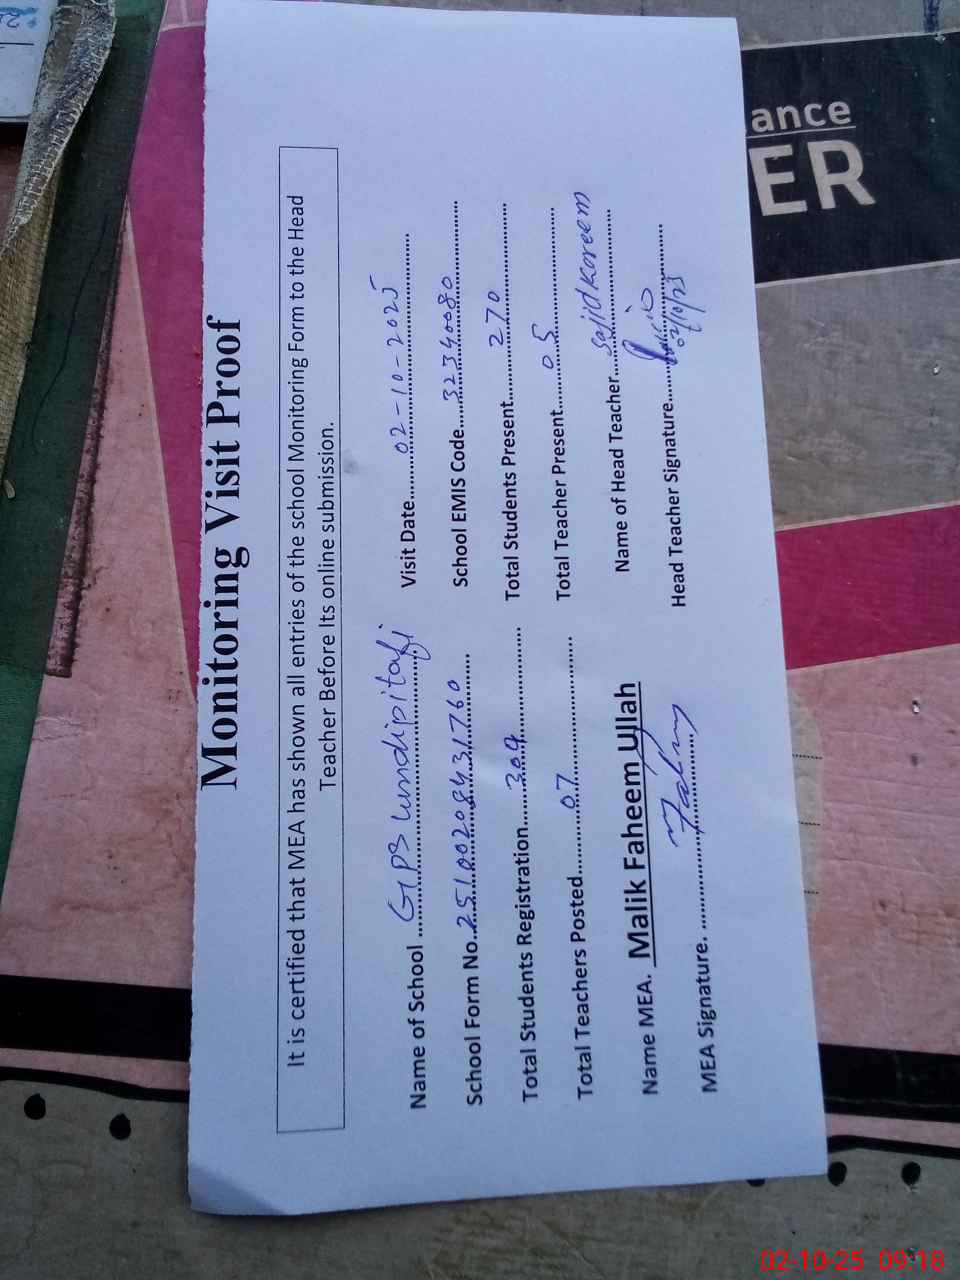 Monitoring Visit Proof
It is certified that MEA has shown all entries of the school Monitoring Form to the Head
Teacher Before Its online submission.
Name of School ........ GPS Lundipitafi ........ Visit Date........ 02-10-2025 ........
School Form No........ 25100208431760 ........ School EMIS Code........ 32340080 ........
Total Students Registration........ 309 ........ Total Students Present........ 270 ........
Total Teachers Posted........ 07 ........ Total Teacher Present........ 05 ........
Name MEA. Malik Faheem Ullah Name of Head Teacher........ Sajid Kareem ........
MEA Signature. ........ Fahim ........ Head Teacher Signature........ 02/10/25
ance
ER
02-10-25 09:18